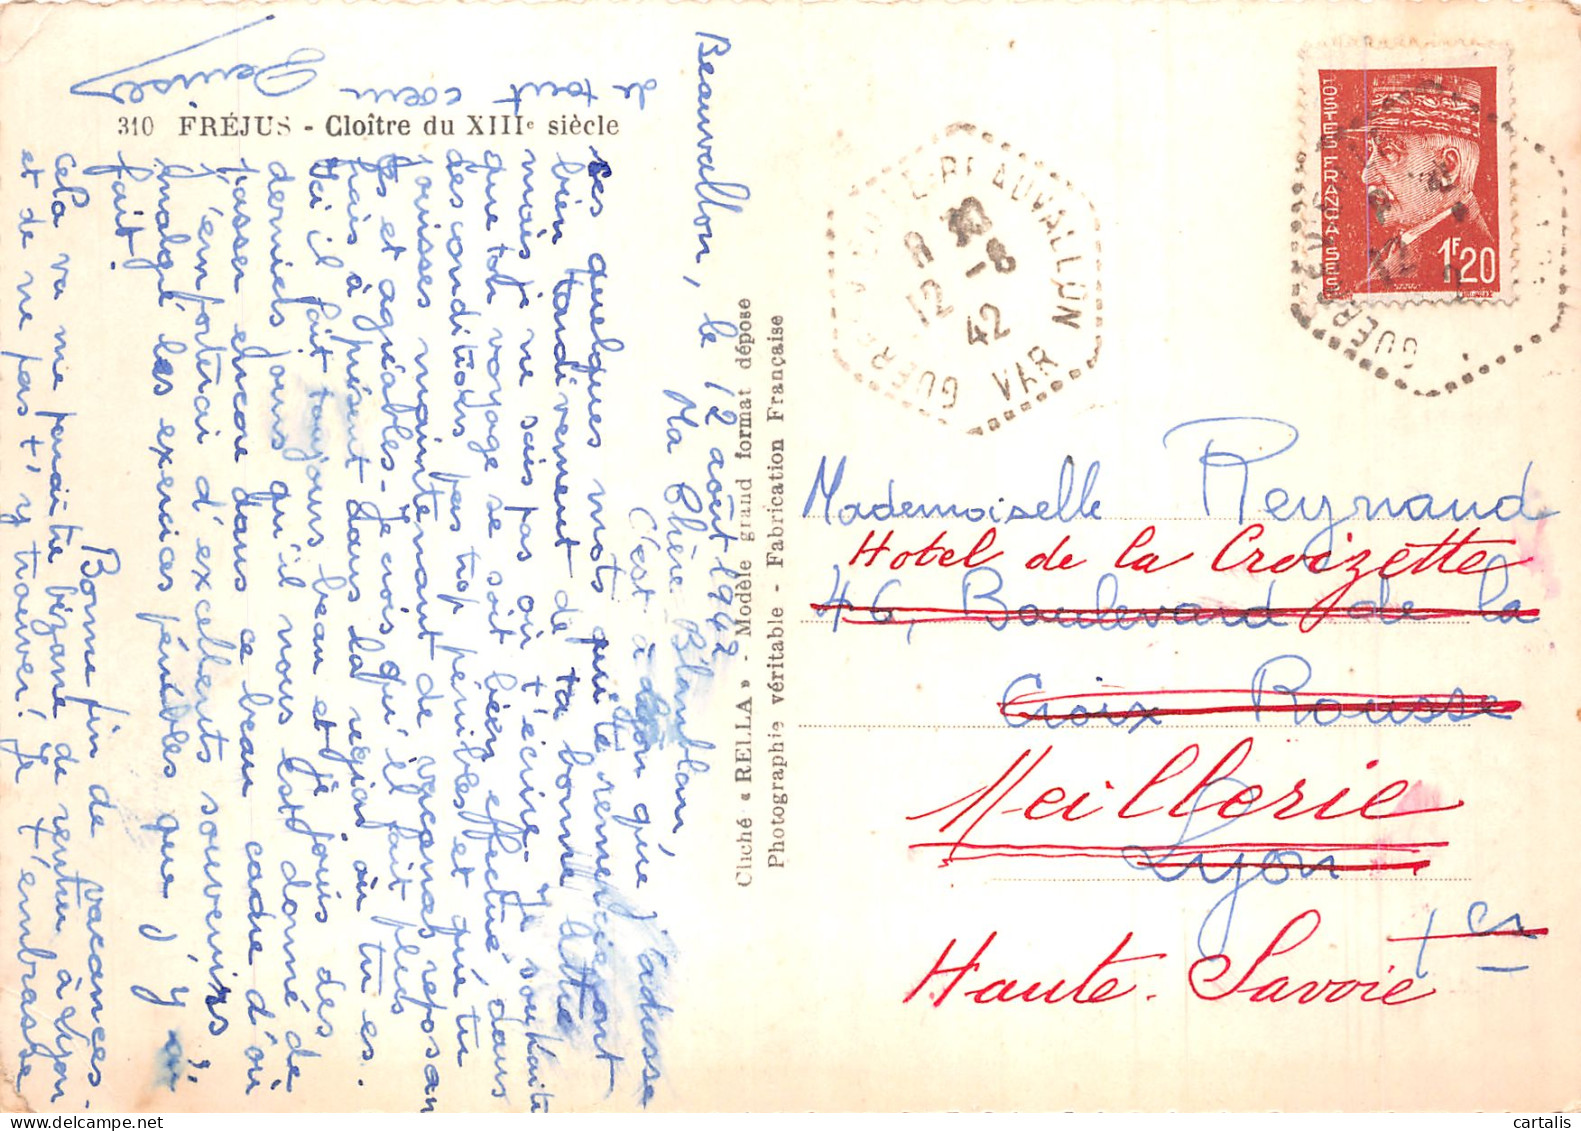 310 FRÉJUS - Cloître du XIIIe siècle
Beauvallon, le 12 août 1942
Ma Chère Blanblan,
C'est à Lyon que j'adresse
ces quelques mots qui te remercieront
bien tardivement de ta bonne lettre
mais je ne sais pas où t'écrire - Je souhaite
que ton voyage se soit bien effectué dans
des conditions pas trop pénibles et que tu
jouisses maintenant de vacances reposan
tes et agréables - Je crois qu'il fait plus
frais à présent dans la région où tu es.
Ici il fait toujours beau et je jouis des
derniers jours qu'il nous est donné de
passer encore dans ce beau cadre d'où
j'emporterai d'excellents souvenirs,
malgré les exercices pénibles que j'y ai
fait!
Bonne fin de vacances -
Cela va me paraître bizarre de rentrer à Lyon
et de ne pas t'y trouver! Je t'embrasse
de tout cœur
Denise
Cliché « RELLA » - Modèle grand format déposé
Photographie véritable - Fabrication Française
BEAUVALLON
12 -8
42
GUER
VAR
POSTES FRANÇAISES
1F20
GUER
Mademoiselle Reynaud
Hotel de la Croizette
46, Boulevard de la
Croix Rousse
Meillerie
Lyon
1er
Haute-Savoie
cartalis